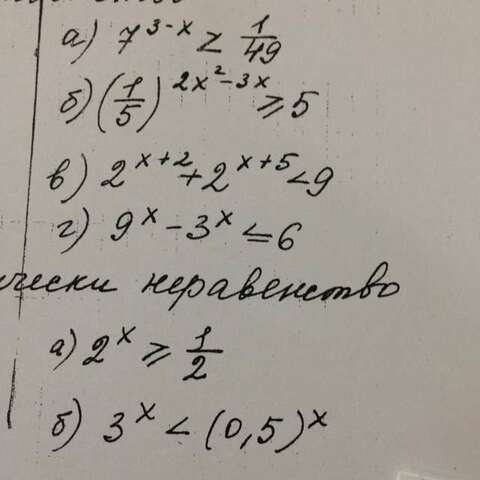 а) 7^(3-x) ≥ 1/49
б) (1/5)^(2x²-3x) ≥ 5
в) 2^(x+2) + 2^(x+5) < 9
г) 9^x - 3^x ≤ 6
чески неравенство
а) 2^x ≥ 1/2
б) 3^x < (0,5)^x